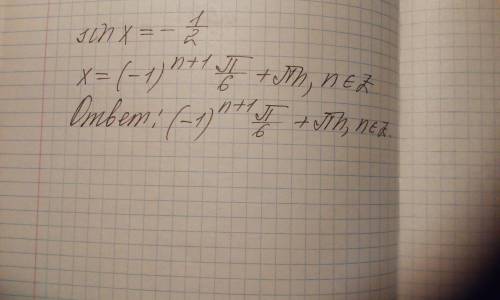 sin x = - 1/2
x = (-1)^{n+1} π/6 + πn, n ∈ Z
Ответ: (-1)^{n+1} π/6 + πn, n ∈ Z.